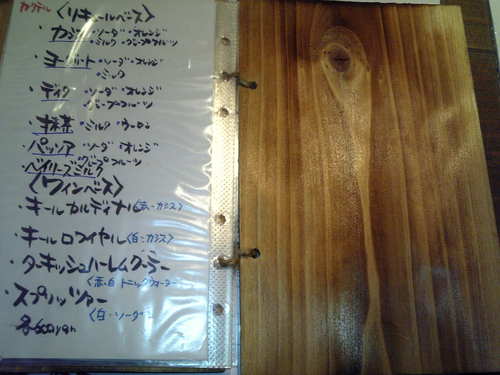 カクテル 〈リキュールベース〉
・カシス ・ソーダ ・オレンジ
・ミルク ・グレープフルーツ
・ヨーグルト ・ソーダ ・オレンジ
・ミルク
・ディタ ・ソーダ ・オレンジ
・グレープフルーツ
・抹茶 ・ミルク ・ウーロン
・パッソア ・ソーダ ・オレンジ
・グレープフルーツ
・ベイリーズミルク
〈ワインベース〉
・キールカルディナル〈赤・カシス〉
・キールロワイヤル〈白・カシス〉
・ターキッシュハーレムクーラー
〈赤・白 トニックウォーター〉
・スプリッツァー
〈白・ソーダ〉